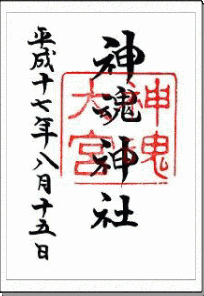 神魂神社
平成十七年八月十五日
神魂
大宮